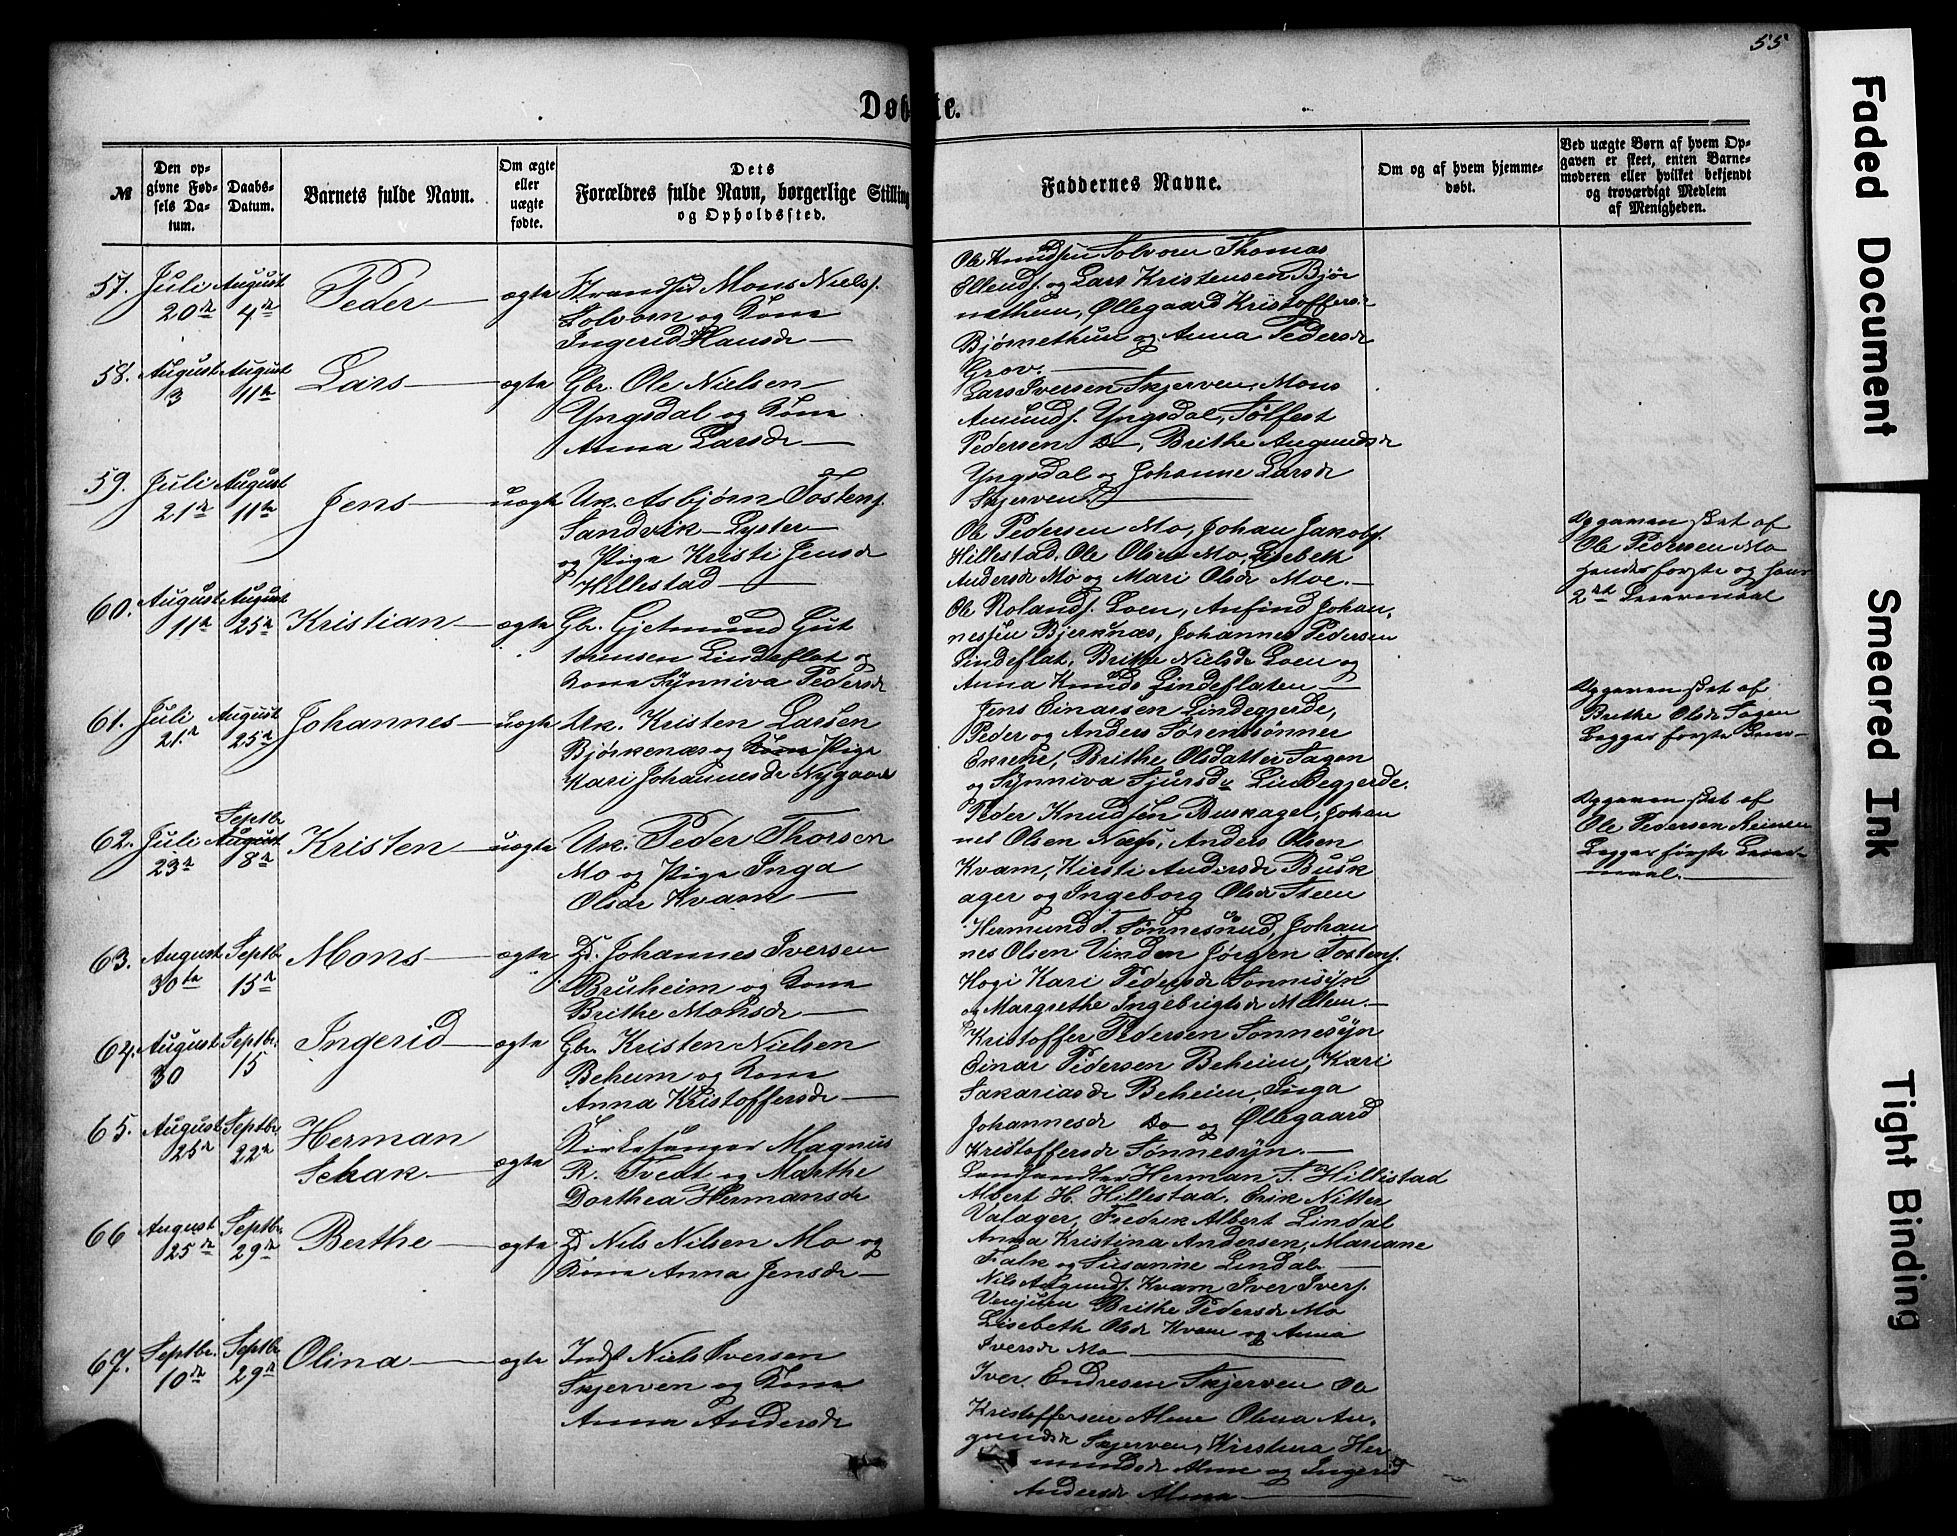 55
Døbte.
№
Den opgivne Fødsels Datum.
Daabs-Datum.
Barnets fulde Navn.
Om ægte eller uægte fødte.
Dets Forældres fulde Navn, borgerlige Stilling og Opholdssted.
Faddernes Navne.
Om og af hvem hjemmedøbt.
Ved uægte Børn af hvem Opgaven er skeet, enten Barnemoderen eller hvilket bekjendt og troværdigt Medlem af Menigheden.
57. Juli 20de August 4de Peder ægte
Strandsid. Mons Nielsf.
Solvorn og Kone
Ingerid Hansdr
Ole Knudsen Solvorn Thomas
Ellendf. og Lars Kristensen Bjør
nethun, Øllegaard Kristoffers-
Bjørnethun og Anna Pedersdr
Grov.
58. August 3 August 11te Lars ægte
Gbr. Ole Nielsen
Yngsdal og Kone
Anna Larsdr
Lars Iversen Skjerven, Mons
Amundf. Yngsdal, Sølfest
Pedersen Do, Brithe Augundsdr
Yngsdal og Johanne Larsdr
Skjerven.
59. Juli 21de August 11te Jens uægte
Uk. Asbjørn Tostenf.
Sandvik Lyster
og Pige Kristi Jensdr
Hillestad
Ole Pedersen Mo, Johan Jakobf.
Hillestad. Ole Olsen Mo, Lisebeth
Andersdr Mo og Mari Olsdr Moe.
Opgaven sket af
Ole Pedersen Mo
hendes første og hans
2det Leiermaal
60. August 11te August 25de Kristian ægte
Gbr. Gjetmund Gut
tormsen Lindeflat og
Kone Synniva Pedersdr
Ole Rolandf. Loen, Anfind Johan-
nessen Bjerknæs, Johannes Pedersen
Lindeflat, Brithe Nielsdr Loen og
Anna Knuds Lindeflaten
61. Juli 21de August 25de Johannes uægte
Uk. Kristen Larsen
Bjørkenæs og Kone Pige
Kari Johannesdr Nygaard
Jens Einarsen Lindegjerde,
Peder og Anders Sørensønner
Ekrene, Brithe Olsdatter Fagen
og Synniva Sjursdr Lindegjerde.
Opgaven sket af
Brithe Olsdr Fagen
Begges første Leier-
62. Juli 23de August Septbr. 8de Kristen uægte
Uk. Peder Thorsen
Mo og Pige Inga
Olsdr Kvam
Peder Knudsen Buskager, Johan
nes Olsen Næss, Anders Olsen
Kvam, Kirsti Andersdr Busk
ager og Ingeborg Olsdr Steen
Opgaven sket af
Ole Pedersen
Begges første Leier-
maal.
63. August 30te Septbr. 15de Mons ægte
Gd. Johannes Iversen
Bruheim og Kone
Brithe Monsdr
Hermund T. Sønnesyn, Johan
nes Olsen Vinden Jørgen Tostenf.
Hogi Kari Pedersdr Sønnesyn
og Margrethe Ingebrigtsdr Mellem.
64. August 30 Septbr. 15 Ingerid ægte
Gbr. Kristen Nielsen
Beheim og Kone
Anna Kristoffersdr
Kristoffer Pedersen Sønnesyn
Einar Pedersen Beheim, Kari
Sakariasdr Beheim, Inga
Johannesdr Do og Øllegaard
Kristoffersdr Sønnesyn.
65. August 25de Septbr 22de Herman
Schak ægte
Kirkesanger Magnus
R. Tvedt og Marthe
Dorthea Hermansdr
Landhandler Herman S. Hillestad
Albert H. Hillestad, Erik Nitter
Valager, Fredrik Albert Lindal
Anna Kristina Andersen, Mariane
Falk og Susanne Lindal
66 August 25de Septbr. 29de Berthe ægte
Gd Nils Nilsen Mo og
Kone Anna Jensdr
Nils Augundf. Kvam Iver Iverf.
Brithe Pedersdr Mo
Lisebeth Olsdr Kvam og Anna
Iversdr Mo
67. Septbr. 10de Septbr. 29de Olina ægte
Inds Niels Iversen
Skjerven og Kone
Anna Andersdr
Iver Endresen Skjerven Ole
Kristoffersen Alme Olina Au-
gundsdr Skjerven, Kristina Her
mundsdr Alme og Ingerid
Andersdr Alme
Faded Document
Smeared Ink
Tight Binding